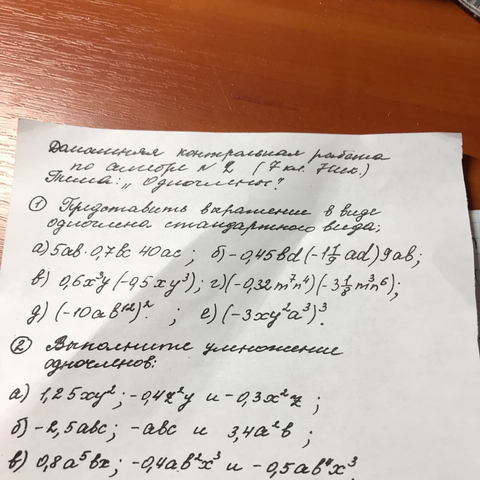 Домашняя контрольная работа
по алгебре №2 (7 кл.)
Тема: „Одночлены"
① Представить выражение в виде
одночлена стандартного вида;
а) 5ab·0,7bc·40ac; б) -0,45bd(-1 1/9 ad)9ab;
в) 0,6x³y(-0,5xy³); г) (-0,32m⁷n⁴)(-3 1/8 m³n⁶);
д) (-10ab¹²)²; е) (-3xy²a³)³.
② Выполните умножение
одночленов:
а) 1,25xy²; -0,4z²y и -0,3x²z;
б) -2,5abc; -abc и 3,4a²b;
в) 0,8a⁵bx; -0,4ab²x³ и -0,5ab⁴x³